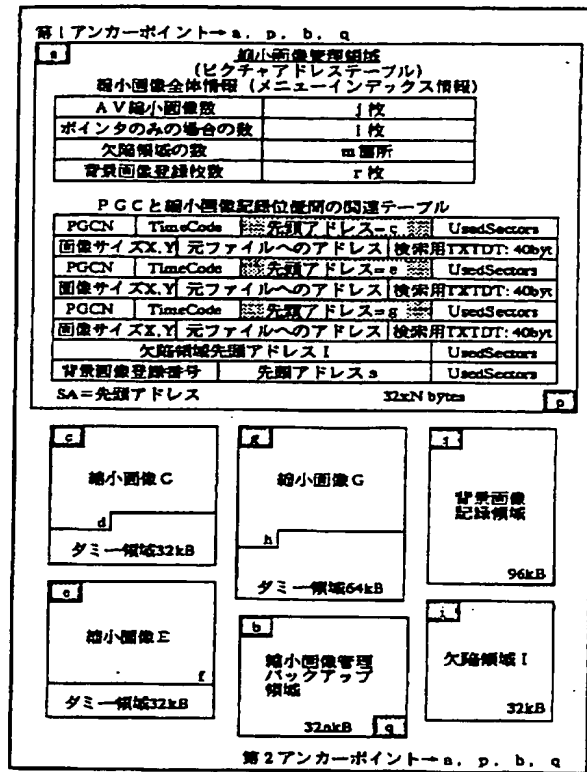 第1アンカーポイント→a, p, b, q
a
縮小画像管理領域
(ピクチャアドレステーブル)
縮小画像全体情報 (メニューインデックス情報)
AV縮小画像数 j枚
ポインタのみの場合の数 l枚
欠陥領域の数 m箇所
背景画像登録枚数 r枚
PGCと縮小画像記録位置間の関連テーブル
PGCN TimeCode 先頭アドレス=c UsedSectors
画像サイズX,Y 元ファイルへのアドレス 検索用TXTDT: 40byt
PGCN TimeCode 先頭アドレス=e UsedSectors
画像サイズX,Y 元ファイルへのアドレス 検索用TXTDT: 40byt
PGCN TimeCode 先頭アドレス=g UsedSectors
画像サイズX,Y 元ファイルへのアドレス 検索用TXTDT: 40byt
欠陥領域先頭アドレス I UsedSectors
背景画像登録番号 先頭アドレス s UsedSectors
SA=先頭アドレス 32xN bytes p
c
縮小画像C
d
ダミー領域32kB
g
縮小画像G
h
ダミー領域64kB
背景画像
記録領域
96kB
e
縮小画像E
f
ダミー領域32kB
b
縮小画像管理
バックアップ
領域
32nkB q
i
欠陥領域 I
32kB
第2アンカーポイント→a, p, b, q